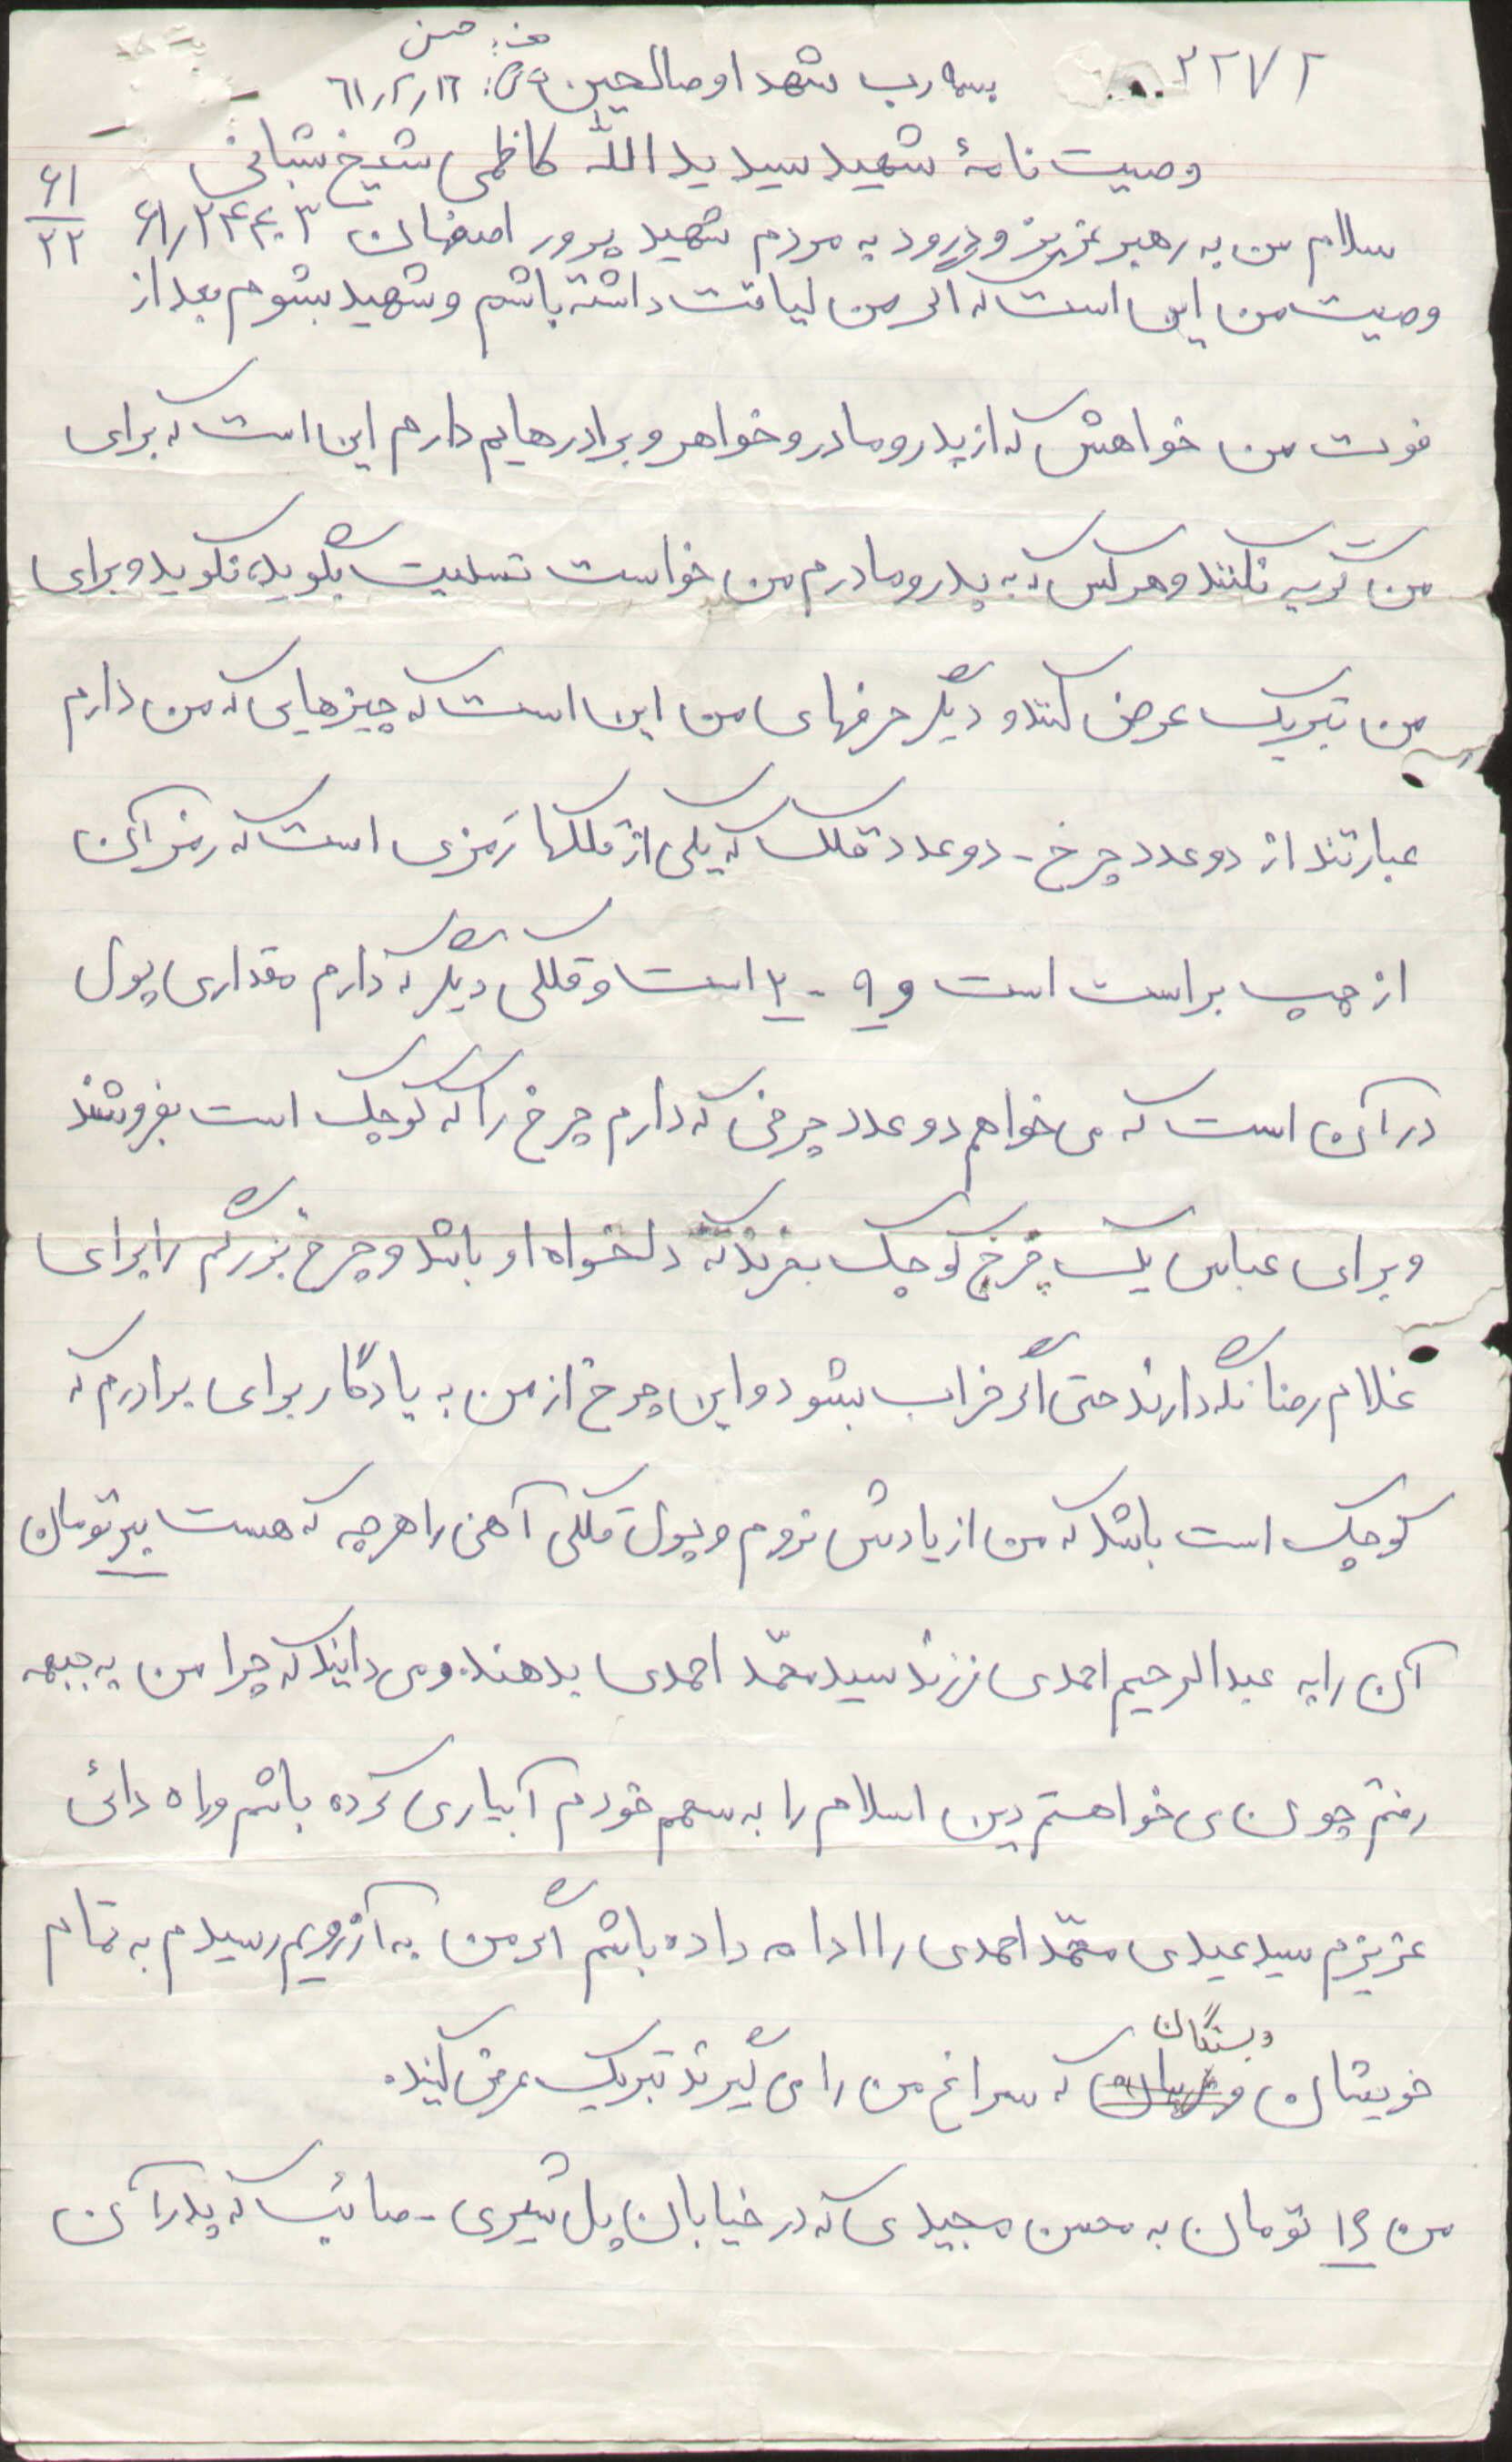 ۲۲۷۲
بسمه رب شهدا و صالحین
۶۱/۲/۱۶
وصیت نامهٔ شهید سید ید الله کاظمی شیخ شبانی
۶۱
۲۲
سلام من به رهبر عزیز و درود به مردم شهید پرور اصفهان
وصیت من این است که اگر من لیاقت داشته باشم و شهید بشوم بعد از
فوت من خواهش که از پدر و مادر و خواهر و برادرهایم دارم این است که برای
من گریه نکنند و هرکس که به پدر و مادرم من خواست تسلیت بگوید، نگوید و برای
من تبریک عرض کنند و دیگر حرفهای من این است که چیزهایی که من دارم
عبارتند از دو عدد چرخ - دو عدد قلک که یکی از قلکها رَمزی است که رمز آن
از چپ براست است و ۹ - ۲ است و قلکی دیگر که دارم مقداری پول
در آن است که می خواهم دو عدد چرخی که دارم چرخ را که کوچک است بفروشند
و برای عباس یک چرخ کوچک بخرند که دلخواه او باشد و چرخ بزرگم را برای
غلام رضا نگه دارند حتی اگر خراب بشود و این چرخ از من به یادگار برای برادرم که
کوچک است باشد که من از یادش نروم و پول قلکی آهن را هرچه که هست تومان
آن را به عبدالرحیم احمدی فرزند سید محمّد احمدی بدهند. و می دانید که چرا من به جبهه
رفتم چون می خواهستم دین اسلام را به سهم خودم آبیاری کرده باشم و راه دائی
عزیزم سید عیدی محمّد احمدی را ادامه داده باشم اگر من به آرزویم رسیدم به تمام
خویشان و بستگان که سراغ من را می گیرند تبریک عرض کنید.
من تومان به محسن مجیدی که در خیابان پل شیری - صائب که پدر آن